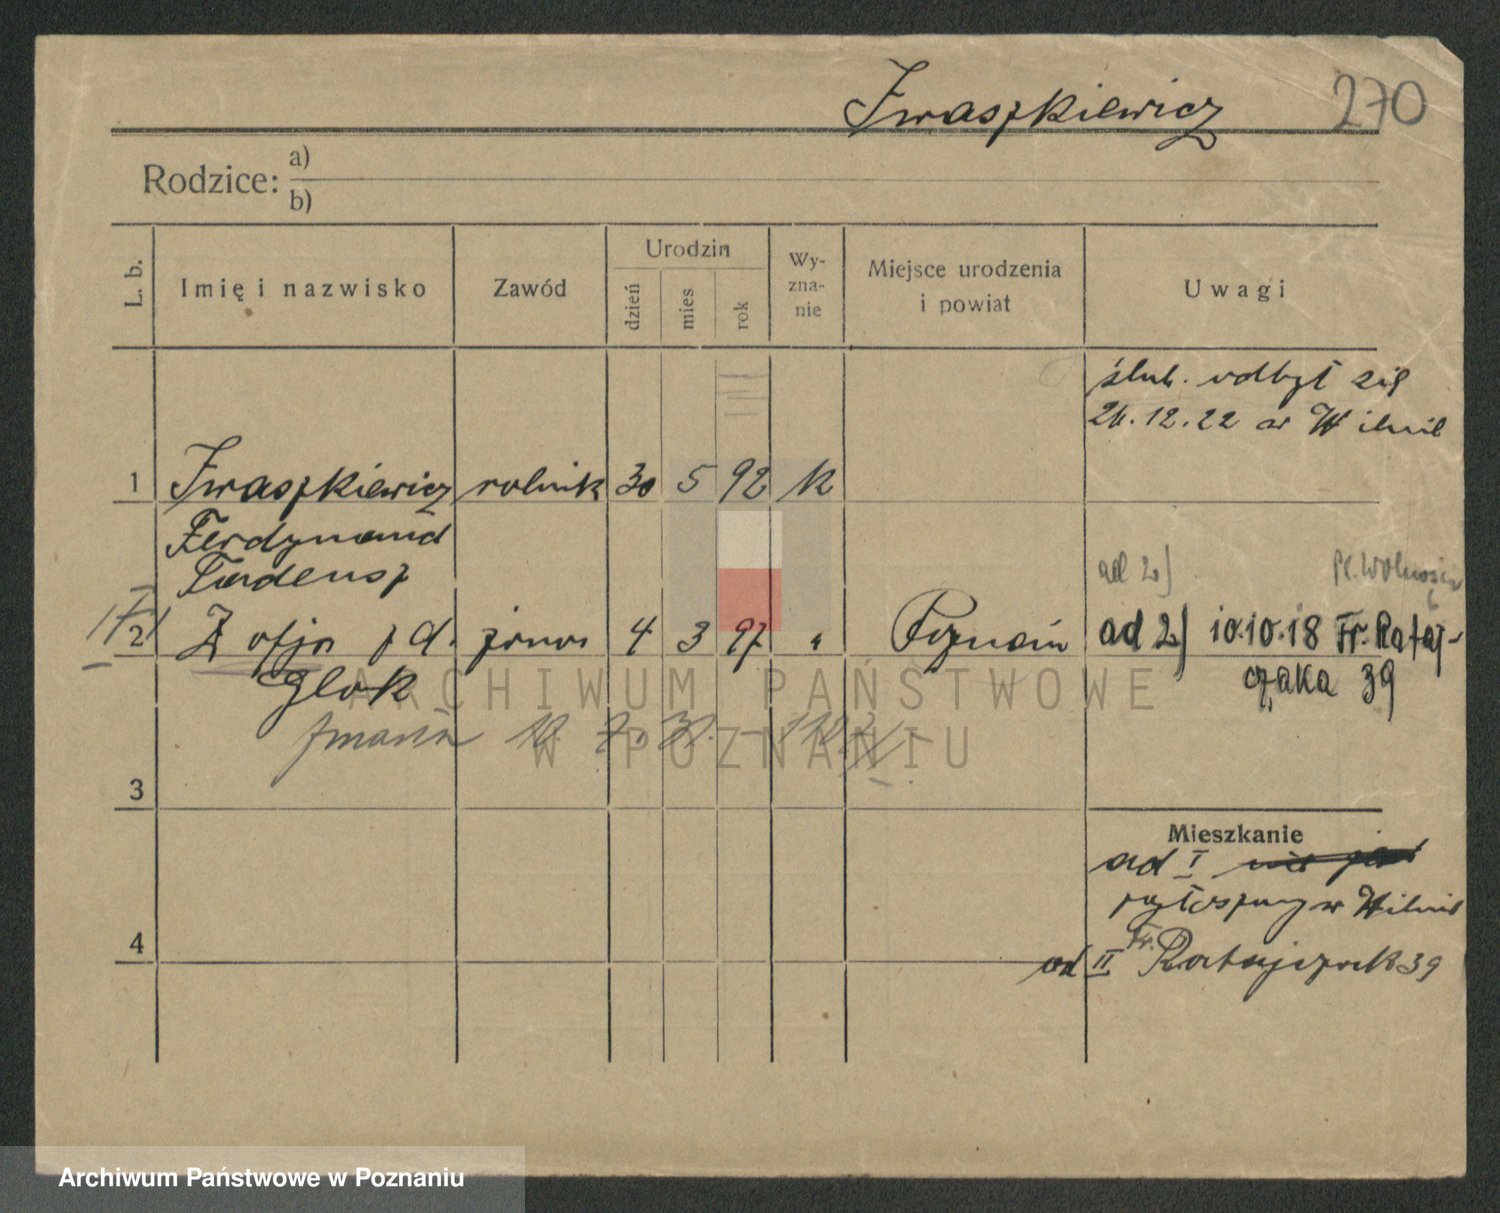 Iwaszkiewicz 270
Rodzice: a)
b)
L. b. Imię i nazwisko Zawód Urodzin dzień mies rok Wy-zna-nie Miejsce urodzenia i powiat Uwagi
ślub. odbył się
26.12.22 w Wilnie
1 Iwaszkiewicz rolnik 30 5 92 k
Ferdynand
Tadeusz
ad 2) Pl. Wolności
6
2 Zofja z d. żona 4 3 97 " Poznań ad 2) 10.10.18 Fr. Rataj-
Glok czaka 39
zmarła
3
Mieszkanie
ad I
w Wilnie
4
ad II Fr. Ratajczak 39
ARCHIWUM PAŃSTWOWE
W POZNANIU
Archiwum Państwowe w Poznaniu